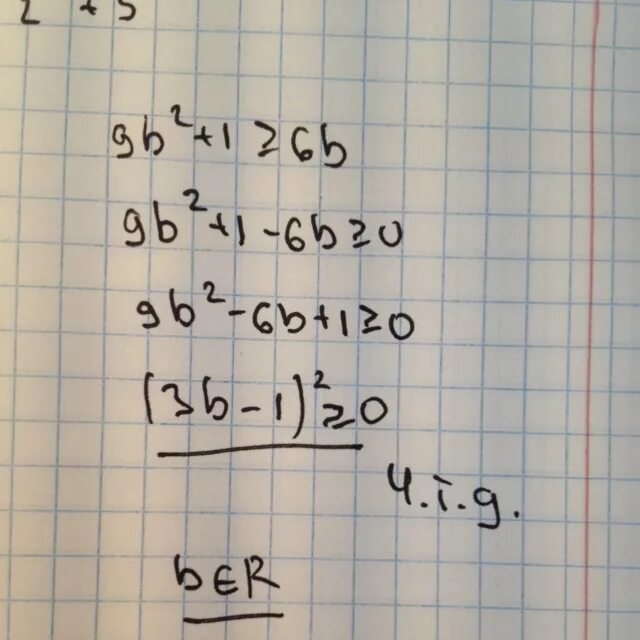 9b²+1 ≥ 6b
9b²+1-6b ≥ 0
9b²-6b+1 ≥ 0
(3b-1)² ≥ 0
ч.т.д.
b∈R